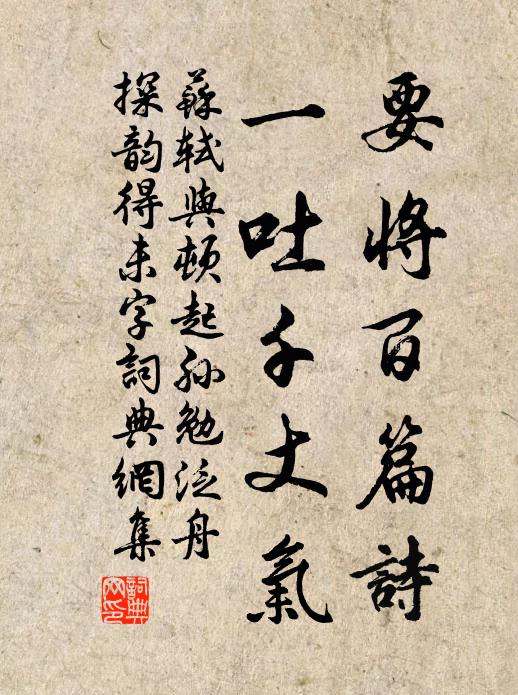 要將百篇詩
一吐千丈氣
蘇軾與頓起孫勉泛舟
探韵得未字詞典網集
詞典網印